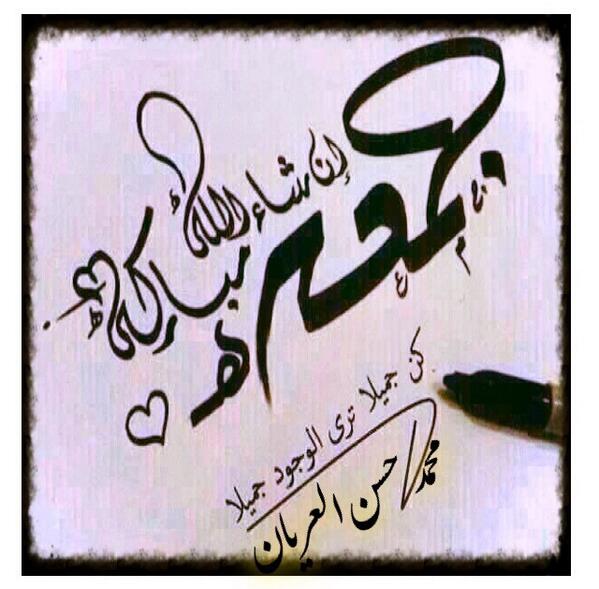 جمعه
إن شاء الله
مباركه
كن جميلا ترى الوجود جميلا
محمد حسن العريان